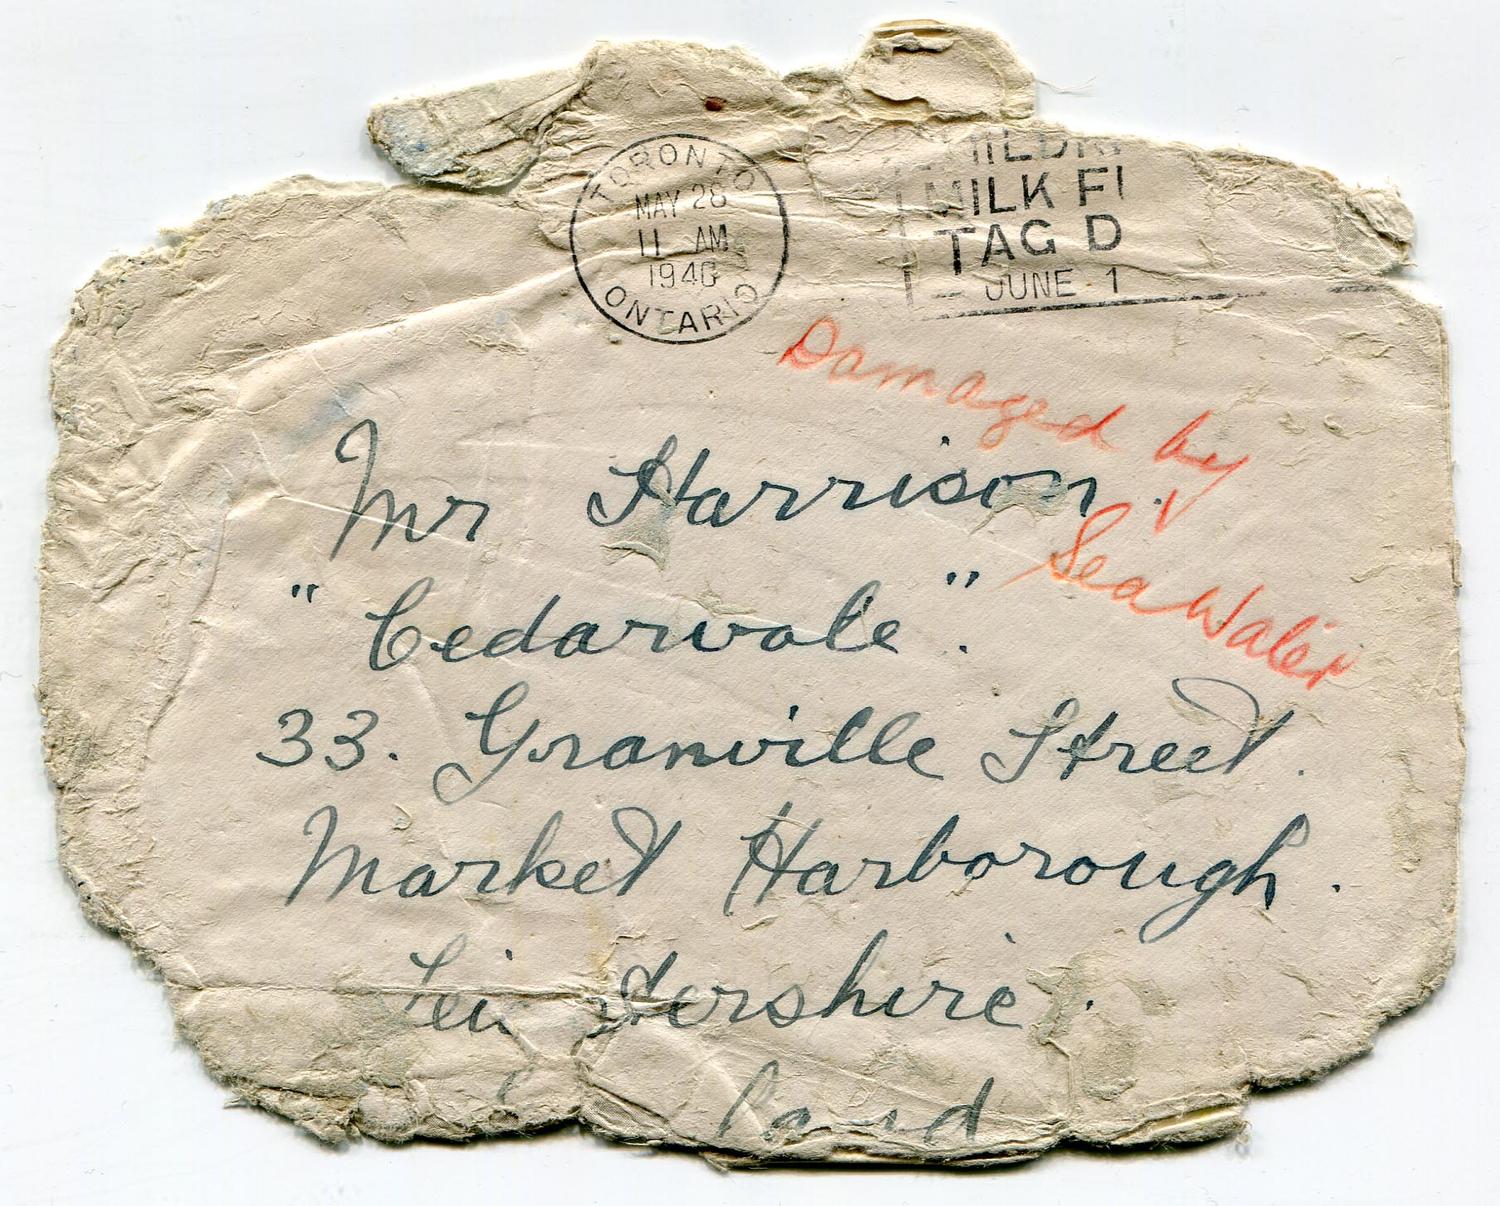 TORONTO
MAY 28
11 AM
1940
ONTARIO
MILK
TAG D
JUNE 1
Damaged by
Sea Water
Mr Harrison.
"Cedarvale".
33. Granville Street.
Market Harborough.